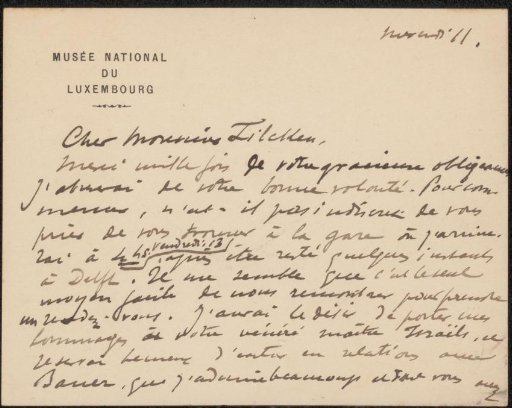 mercredi 11.
MUSÉE NATIONAL
DU
LUXEMBOURG
Cher Monsieur Zilcken,
Merci mille fois de votre gracieuse obligeance
J'abuserai de votre bonne volonté. Pour com-
mencer, n'est-il pas indiscret de vous
prier de vous trouver à la gare où j'arrive-
rai à 4 hs. vendredi 13, après être resté quelques instants
à Delft. Il me semble que c'est le seul
moyen facile de nous rencontrer pour prendre
un rendez-vous. J'aurai le désir de porter mes
hommages à votre vénéré maître Israëls, je
serai heureux d'entrer en relations avec
Bauer, que j'admire beaucoup et dont vous